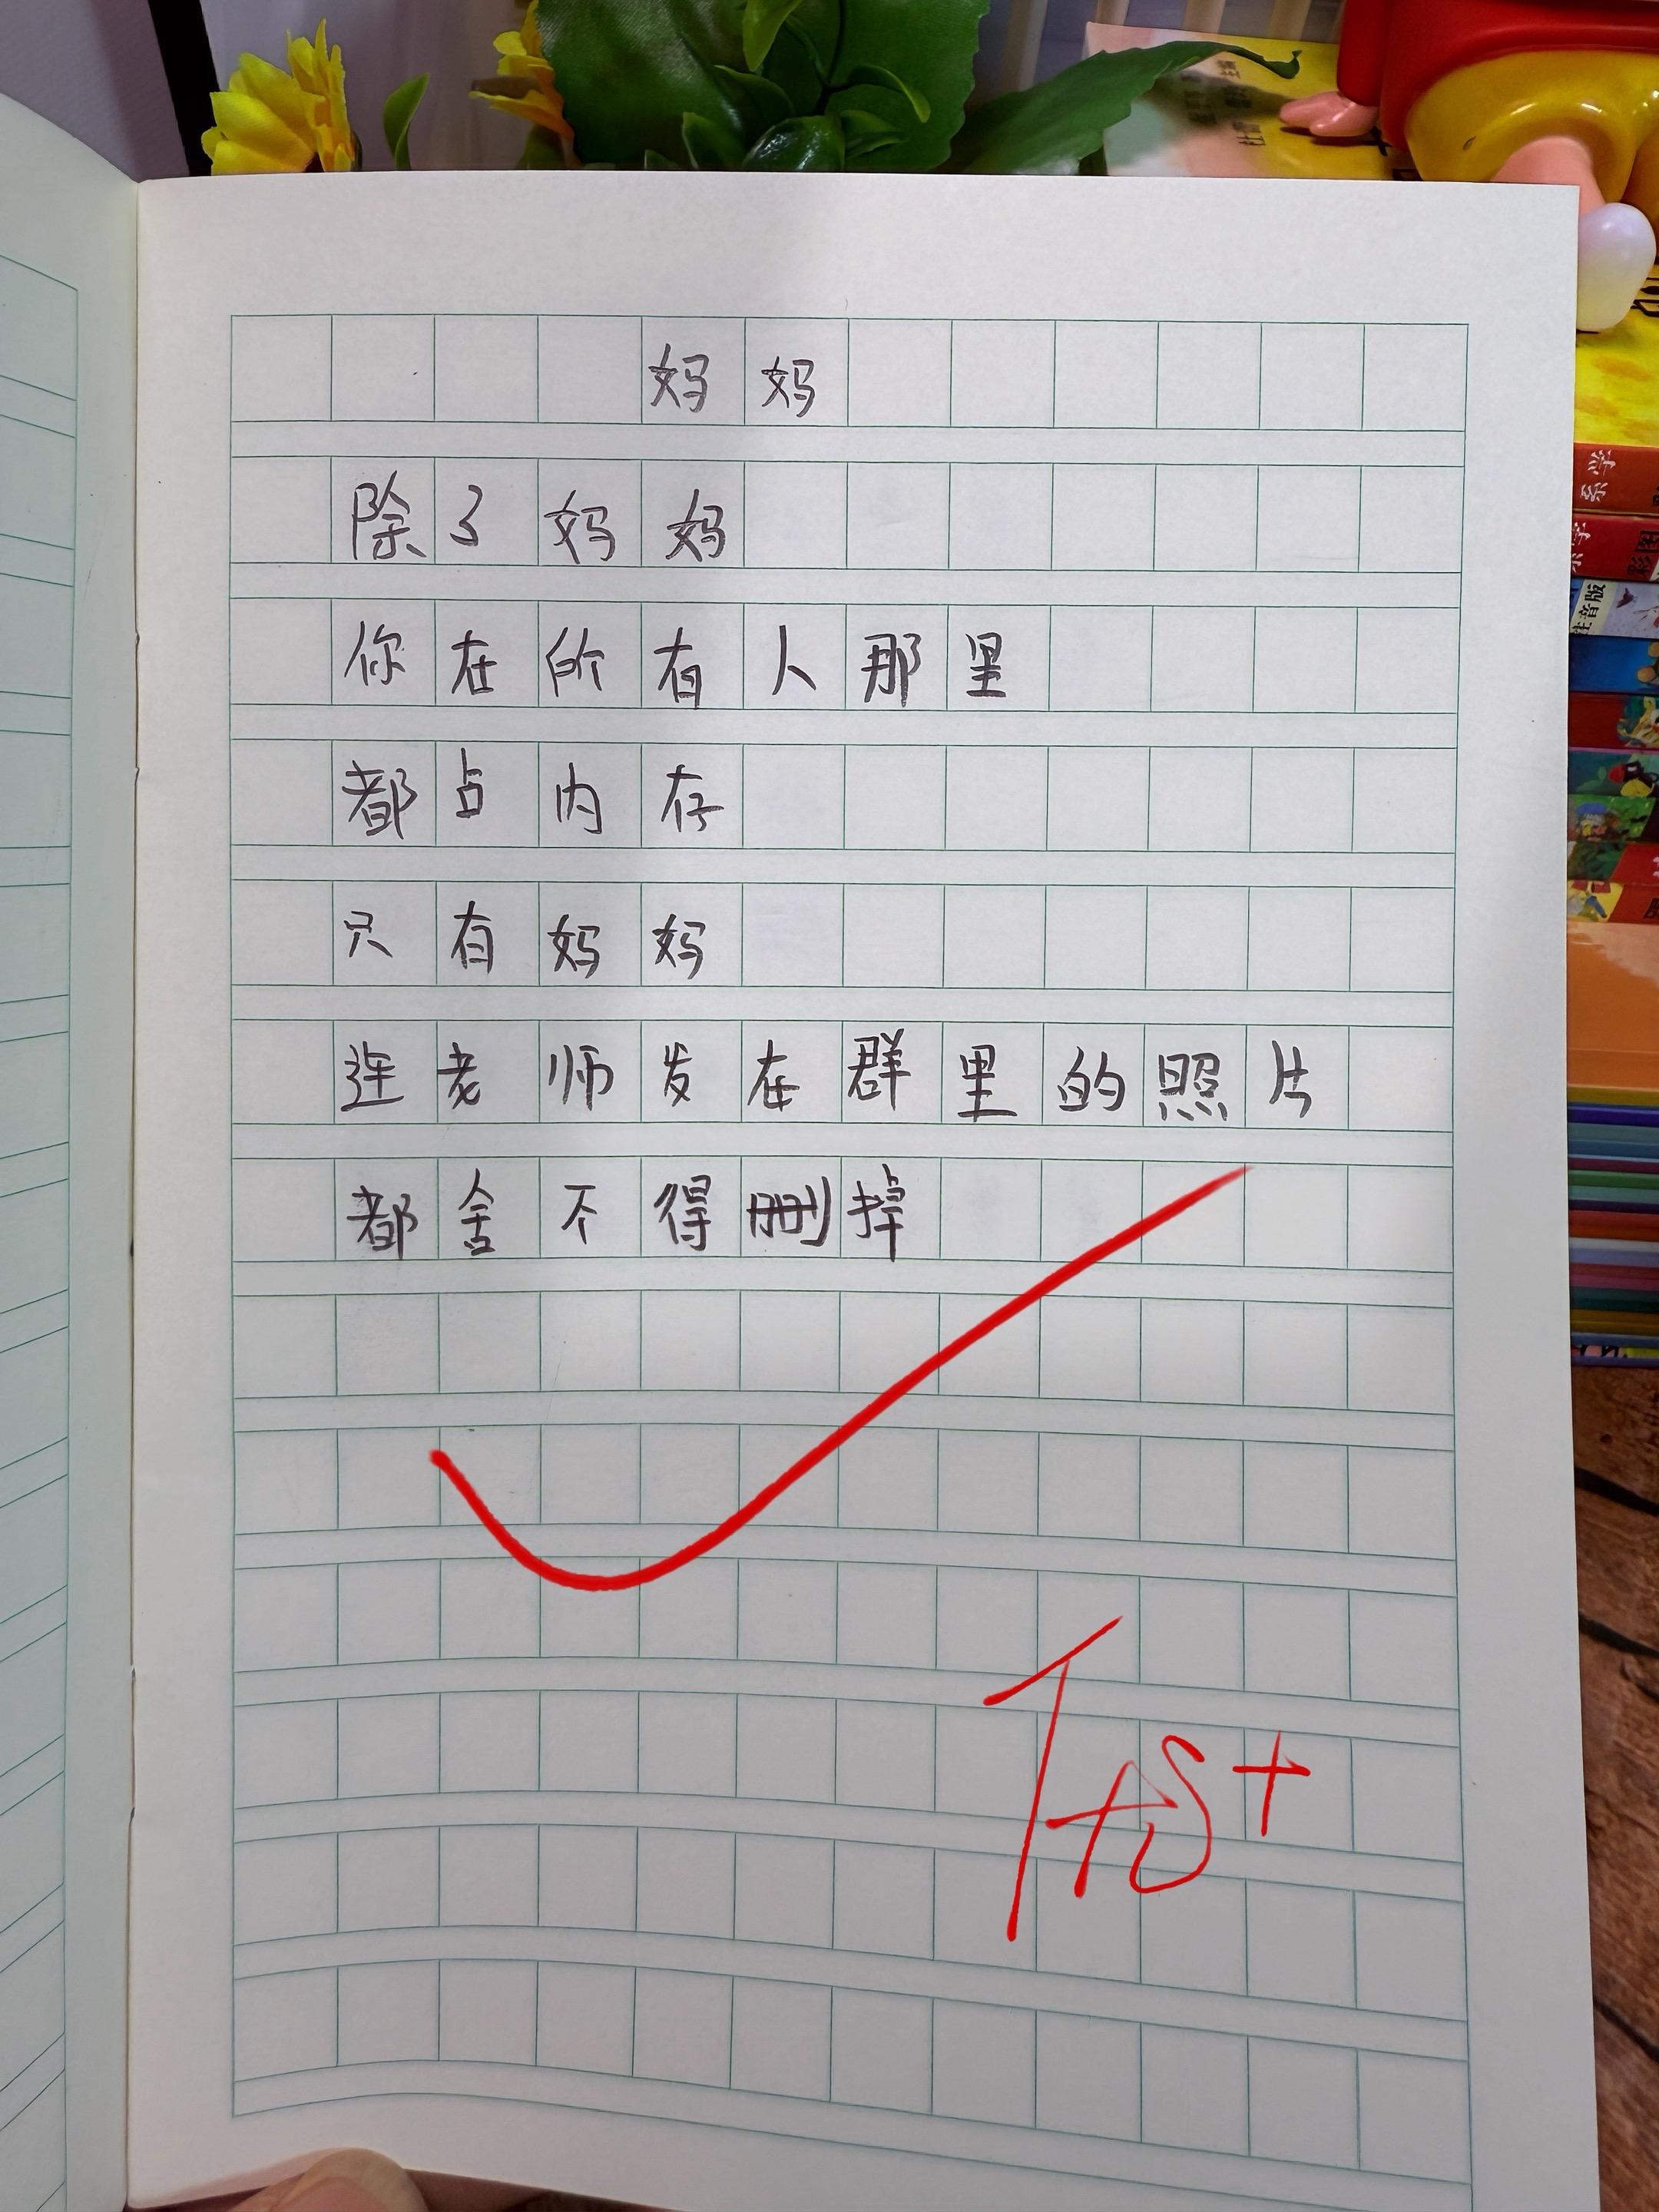 妈妈
除了妈妈
你在所有人那里
都占内存
只有妈妈
连老师发在群里的照片
都舍不得删掉
注音版